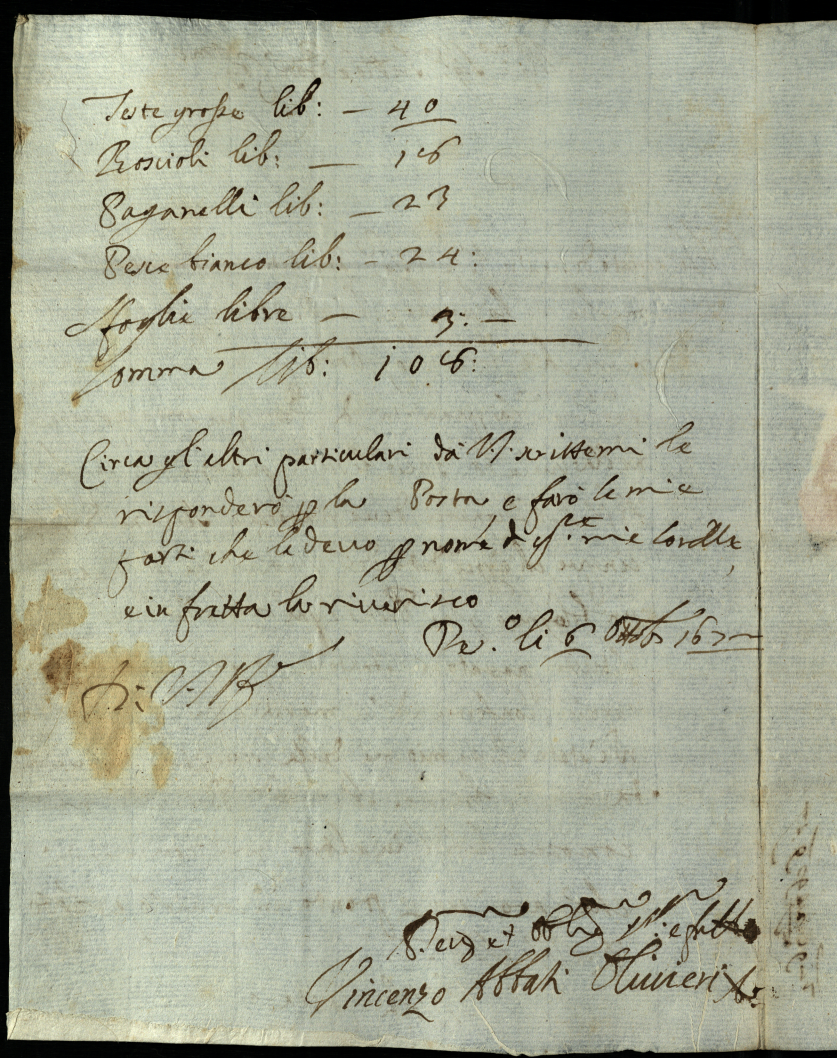 Teste grosse lib: — 40
Roscioli lib: — 16
Paganelli lib: — 23
Pesce bianco lib: — 24:
sfoglie libre — 3: —
Somma lib: 106:
Circa gl'altri particulari da V.S. scrittemi le
risponderò p la Posta, e farò le mie
parti che le devo p nome di
e in fretta la riverisco
li 6 Ottob 167
Di V.S.
Vincenzo Abbati Olivieri